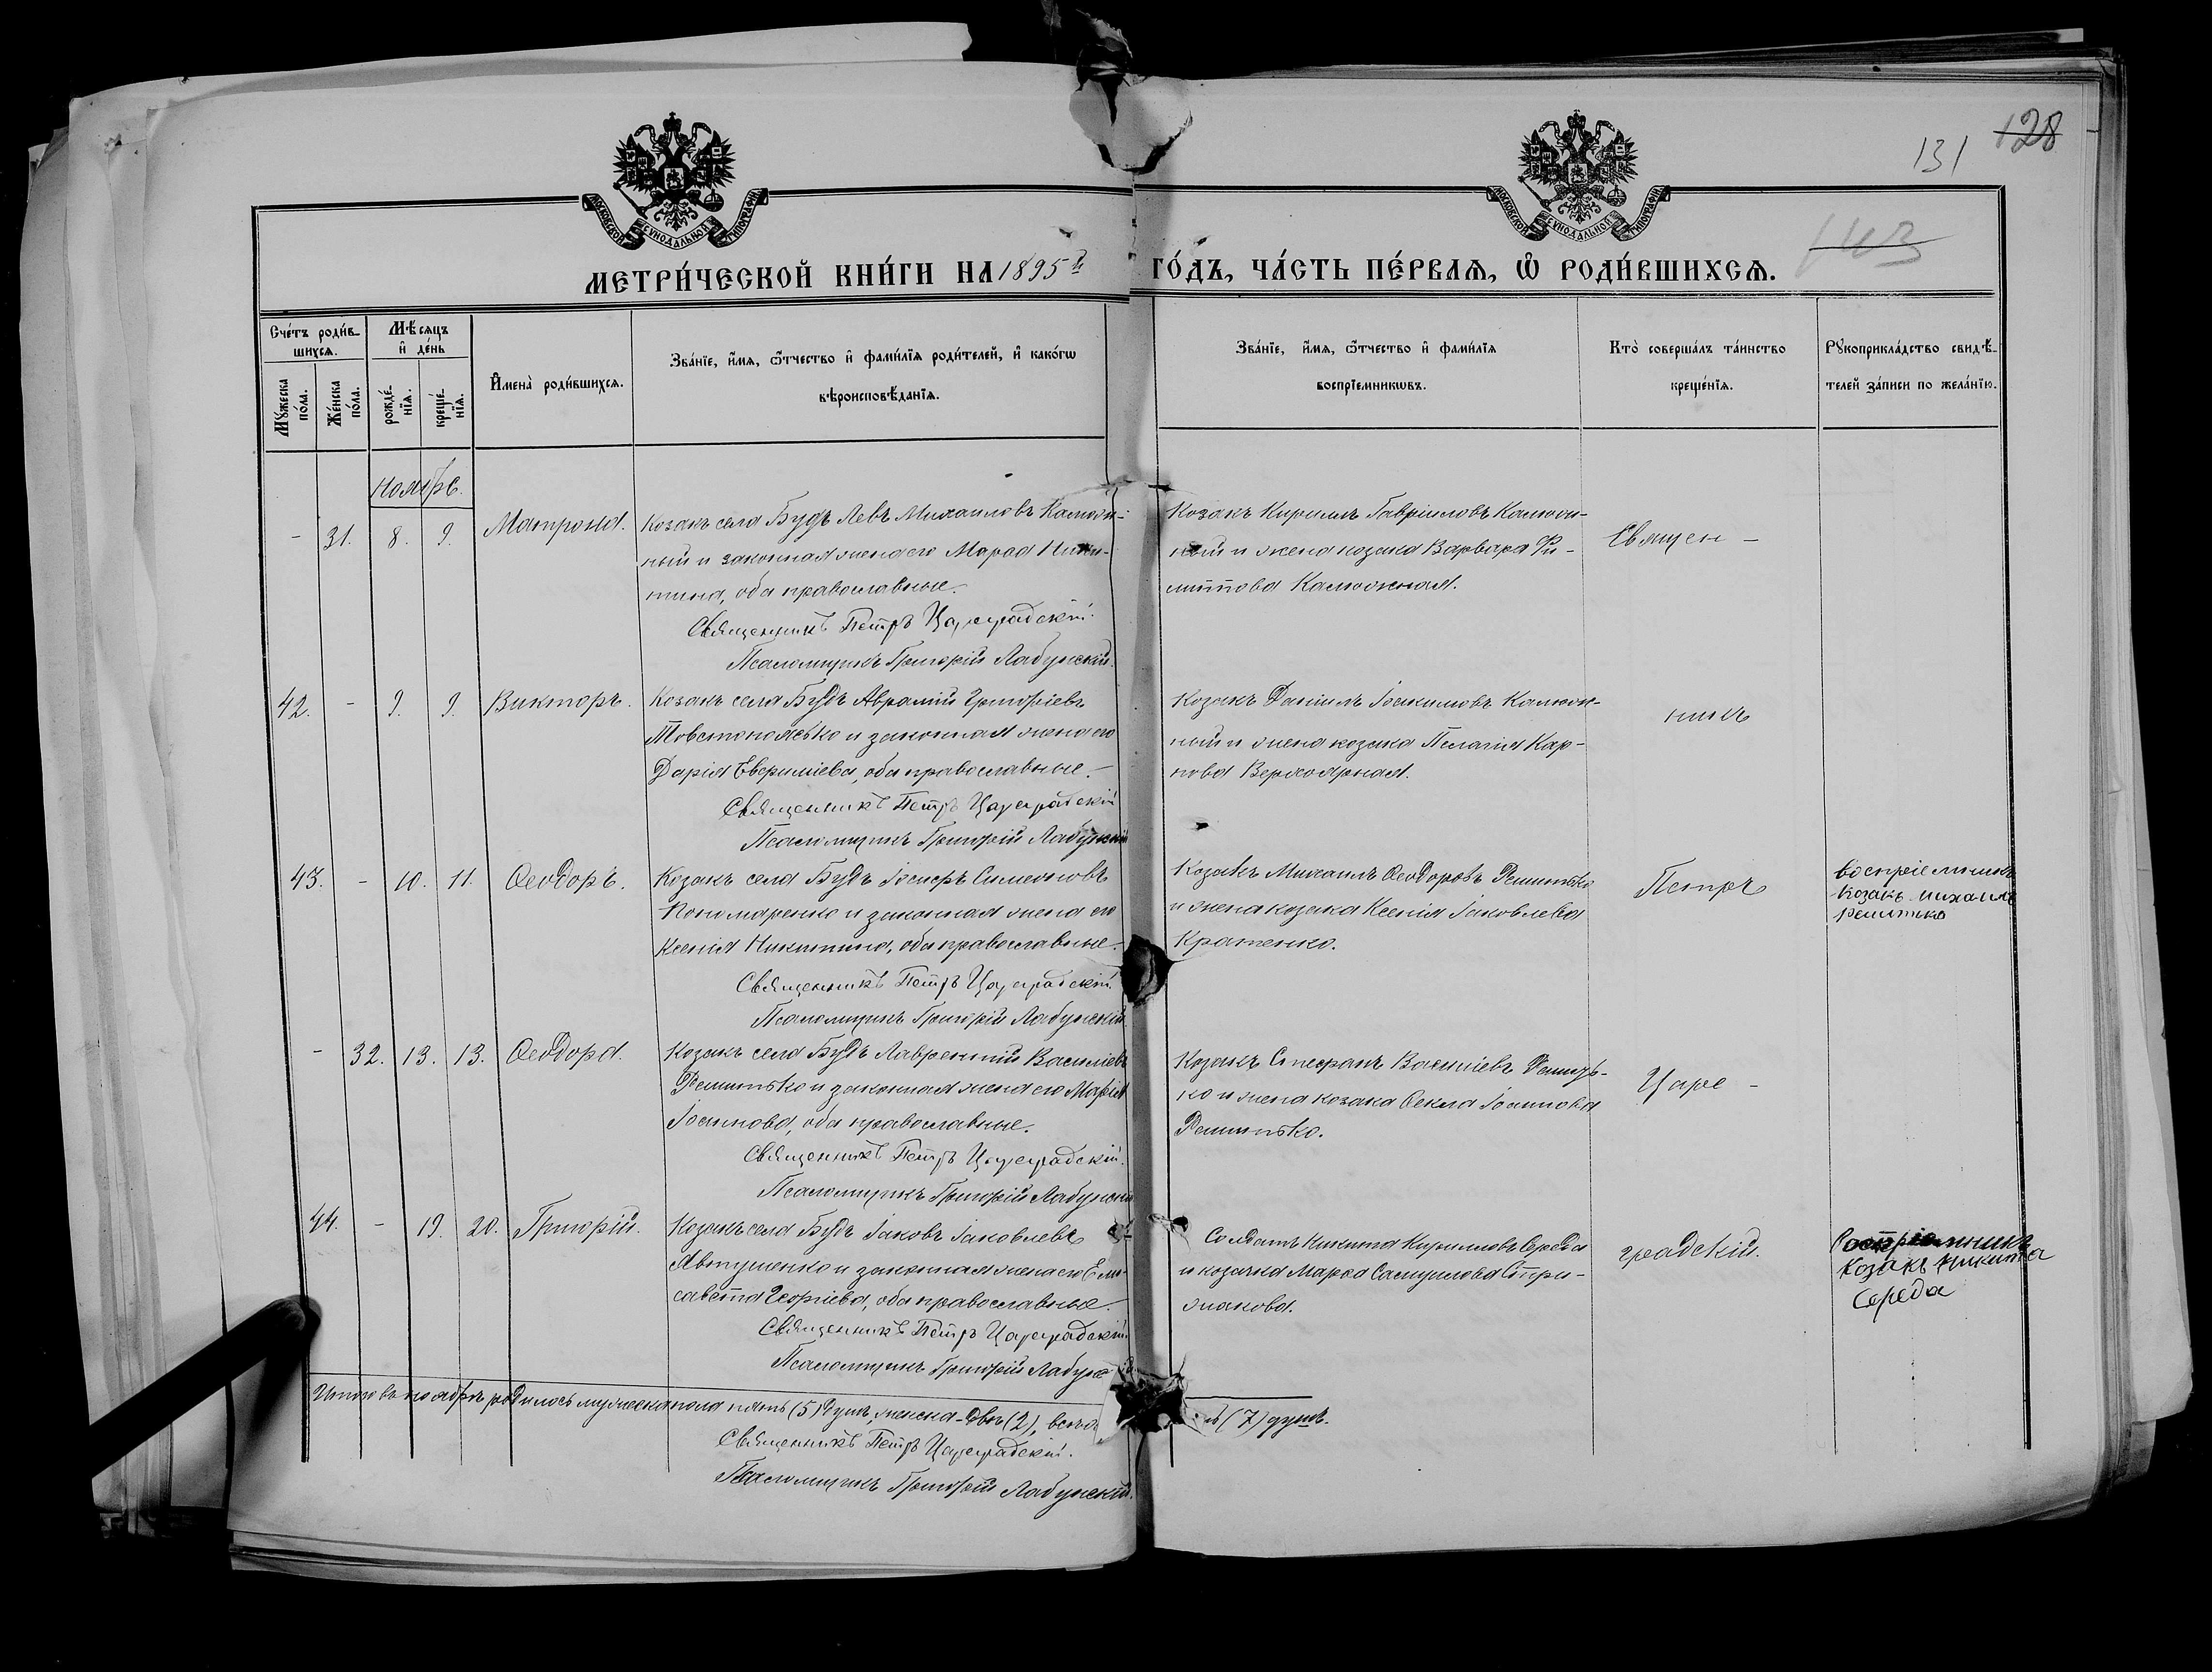 131 128
143
МОСКОВСКОЙ СѴНОДАЛЬНОЙ ТИПОГРАФІИ
МОСКОВСКОЙ СѴНОДАЛЬНОЙ ТИПОГРАФІИ
МЕТРИ́ЧЕСКОЙ КНИ́ГИ НА 1895й ГО́ДЪ, ЧА́СТЬ ПЕ́РВАѦ, Ѿ РОДИ́ВШИХСѦ.
Сче́тъ роди́в-
шихсѧ.
Мꙋ́жеска
по́ла.
Же́нска
по́ла.
Мѣ́сѧцъ
и҆ де́нь
рожде́-
нїѧ.
креще́-
нїѧ.
И҆мена̀ роди́вшихсѧ.
Зва́нїе, и҆́мѧ, ѻ҆́тчество и҆ фами́лїѧ роди́телей, и҆ како́гѡ
вѣроисповѣ́данїѧ.
Зва́нїе, и҆́мѧ, ѻ҆́тчество и҆ фами́лїѧ
воспрїемникѡвъ.
Кто̀ соверша́лъ та́инство
креще́нїѧ.
Рꙋкоприкла́дство свидѣ́-
телей за́писи по жела́нїю.
Ноябрь.
- 31. 8. 9. Матрона.
Козакъ села Будъ Левъ Михаиловъ Калюж-
ный и законная жена его Марѳа Ники-
тина, оба православные.
Священникъ Петръ Цареградскій.
Псаломщикъ Григорій Лабунскій.
Козакъ Кириллъ Гавріиловъ Калюж-
ный и жена козака Варвара Фи-
липпова Калюжная.
Священ-
42. - 9. 9. Викторъ.
Козакъ села Будъ Аврамій Григоріевъ
Товстоноженко и законная жена его
Дарія Евфиміева, оба православные.
Священникъ Петръ Цареградскій
Псаломщикъ Григорій Лабунскій
Козакъ Даніилъ Іоакимовъ Калюж-
ный и жена козака Пелагія Кар-
пова Верхоярная.
никъ
43. - 10. 11. Ѳеодоръ.
Козакъ села Будъ Іосифъ Симеоновъ
Пономаренко и законная жена его
Ксенія Никитина, оба православные.
Священникъ Петръ Цареградскій.
Псаломщикъ Григорій Лабунскій
Козакъ Михаилъ Ѳеодоровъ Решитько
и жена козака Ксенія Іаковлева
Кратенко.
Петръ
воспріемникъ
козакъ михаилъ
решитько
- 32. 13. 13. Ѳеодора.
Козакъ села Будъ Лаврентій Василіевъ
Решитько и законная жена его Марія
Іосифова, оба православные.
Священникъ Петръ Цареградскій.
Псаломщикъ Григорій Лабунскій
Козакъ Стефанъ Василіевъ Решить-
ко и жена козака Ѳекла
Решитько.
Царе-
44. - 19. 20. Григорій.
Козакъ села Будъ Іаковъ Іаковлевъ
Автушенко и законная жена его Ели-
савета Георгіева, оба православные.
Священникъ Петръ Цареградскій
Псаломщикъ Григорій Лабунс
Солдатъ Никита Кирилловъ Середа
и козачка Марѳа Самуилова Стри-
жакова.
градскій.
Воспріемникъ
Козакъ Никита
Середа
Итого въ ноябрѣ родилось мужеска пола пять (5) душъ, женска - двѣ (2), всего ь (7) душъ.
Священникъ Петръ Цареградскій.
Псаломщикъ Григорій Лабунскій.